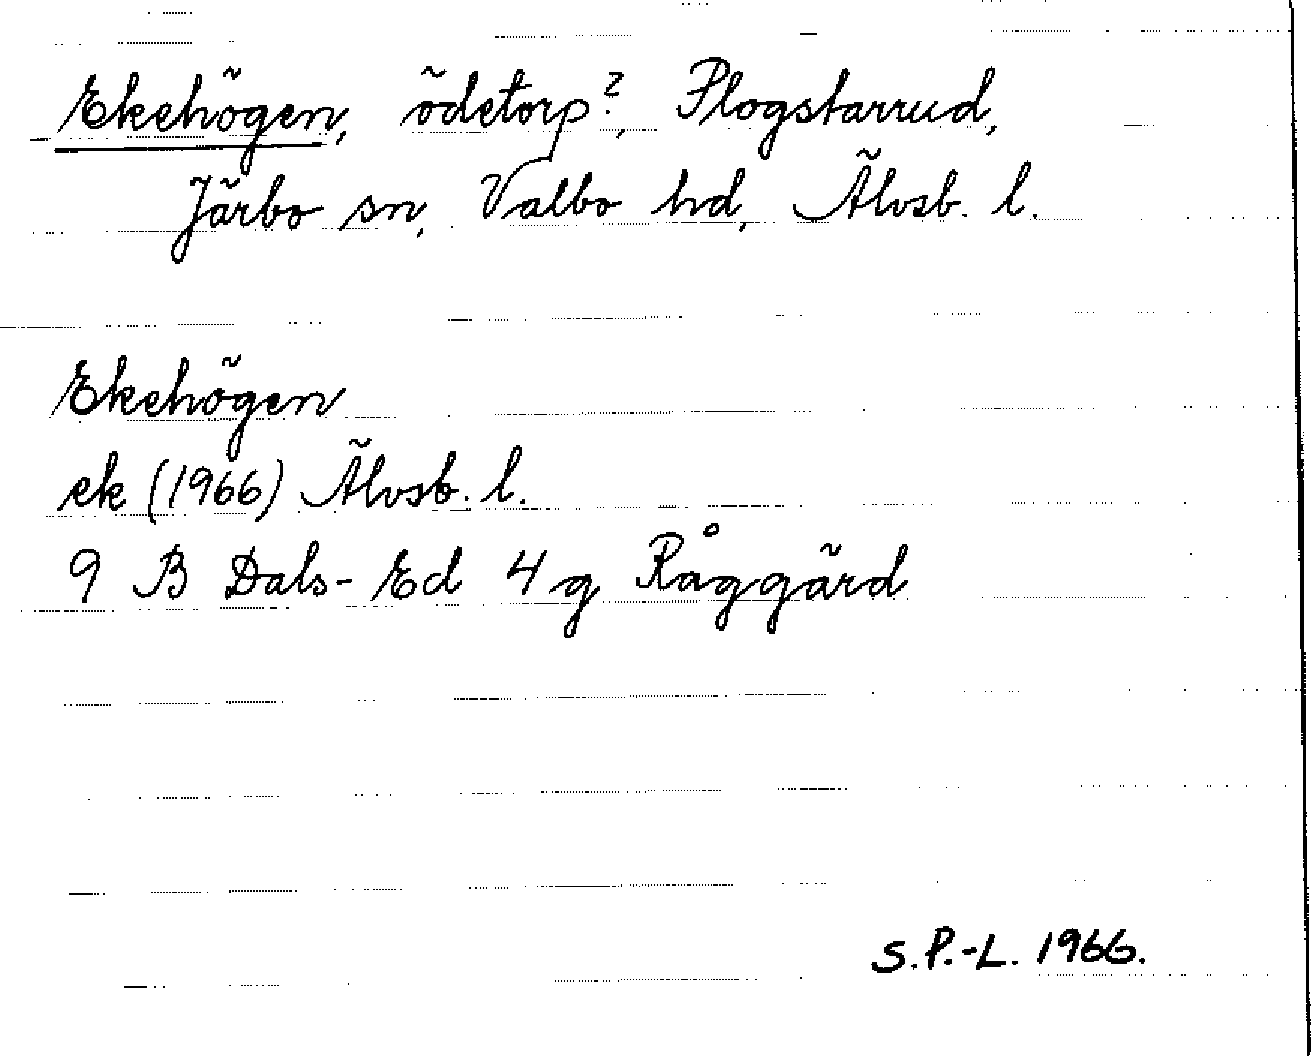 Ekehögen, ödetorp?, Plogstarrud,
Järbo sn, Valbo hd, Älvsb. l.
Ekehögen
ek (1966) Älvsb. l.
9 B Dals-Ed 4 g Råggärd
S.P.-L. 1966.